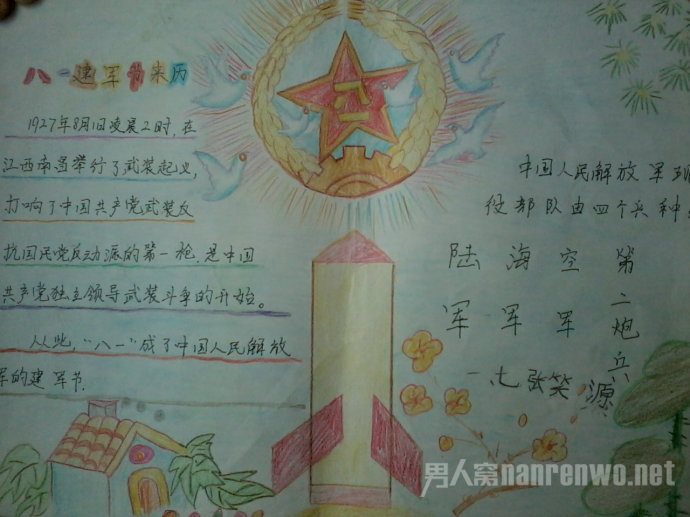 八一建军节来历
1927年8月1日凌晨2时,在
江西南昌举行了武装起义,
打响了中国共产党武装反
抗国民党反动派的第一枪,是中国
共产党独立领导武装斗争的开始。
从此,“八一”成了中国人民解放
军的建军节.
八一
中国人民解放军现
役部队由四个兵种:
陆军
海军
空军
第二炮兵
一、七 张笑源
男人窝nanrenwo.net